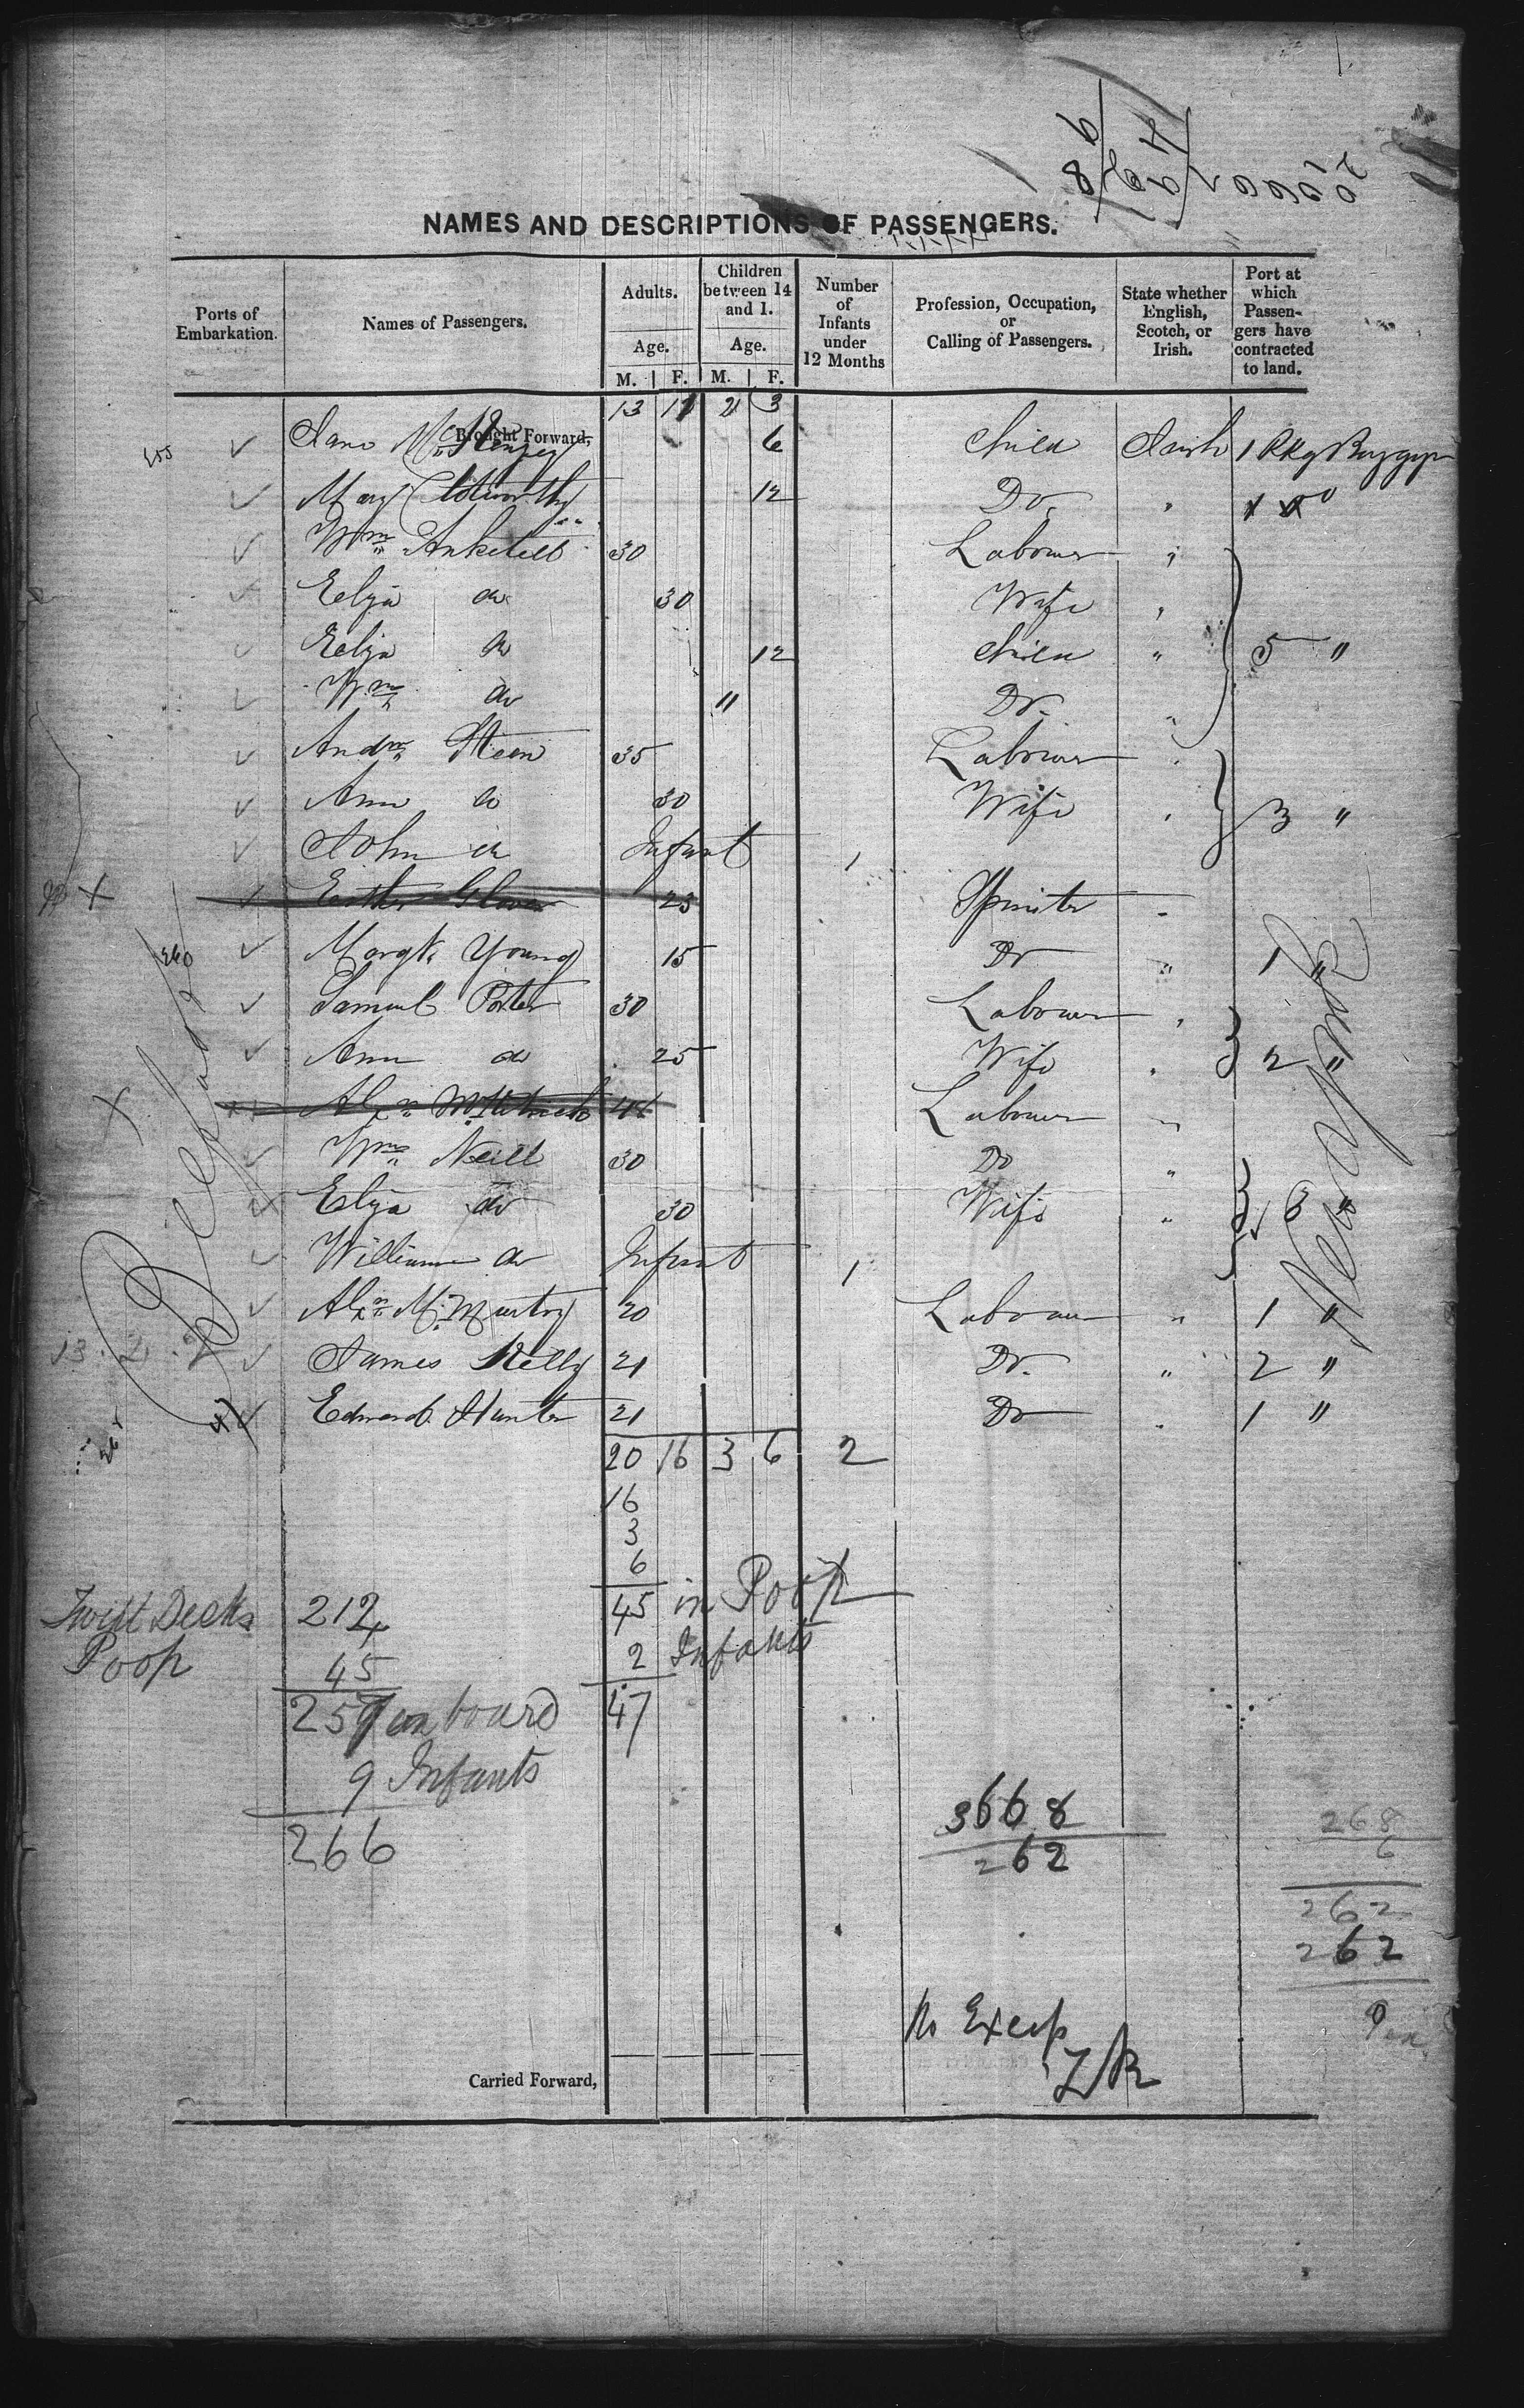 NAMES AND DESCRIPTIONS OF PASSENGERS.
Ports of Embarkation. Names of Passengers. Adults. Age. M. F. Children between 14 and 1. Age. M. F. Number of Infants under 12 Months Profession, Occupation, or Calling of Passengers. State whether English, Scotch, or Irish. Port at which Passengers have contracted to land.
Brought Forward, 13 11 2 3
Jane McKenzey 6 Child Irish 1 Pkg Baggage
Mary Clotworthy 12 Do "
Wm Anketell 30 Labourer "
Eliza do 30 Wife "
Eliza do 12 Child " 5 "
Wm do 11 Do "
Andw Steen 35 Labourer "
Ann do 30 Wife " 3 "
John do Infant 1
Esther Glover 23 Spinster "
260 Margt Young 15 Do " 1 "
Samuel Porter 30 Labourer "
Ann do 25 Wife " 2 "
Alexr 44 Labourer "
Wm Neill 30 Do "
Eliza do 30 Wife " 3 "
William do Infant 1
Alexr McMurtry 20 Labourer " 1 "
James Kelly 21 Do " 2 "
Edward Hunter 21 Do " 1 "
Belfast
New York
20 16 3 6 2
16
3
6
45 in Poop
2 Infants
47
Twixt Decks 212
Poop 45
257 on board
9 Infants
266
3668
262
268
6
262
262
No Excep
Carried Forward,